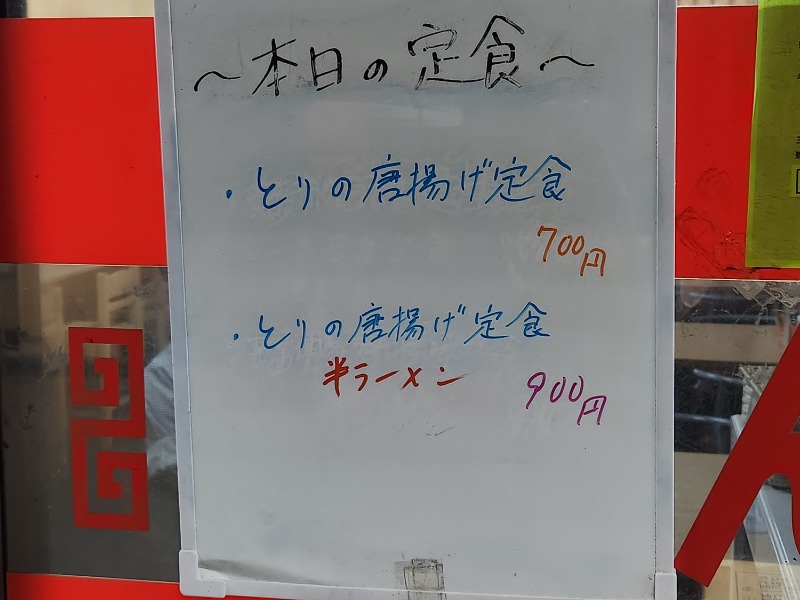 ～本日の定食～
・とりの唐揚げ定食
700円
・とりの唐揚げ定食
半ラーメン
900円